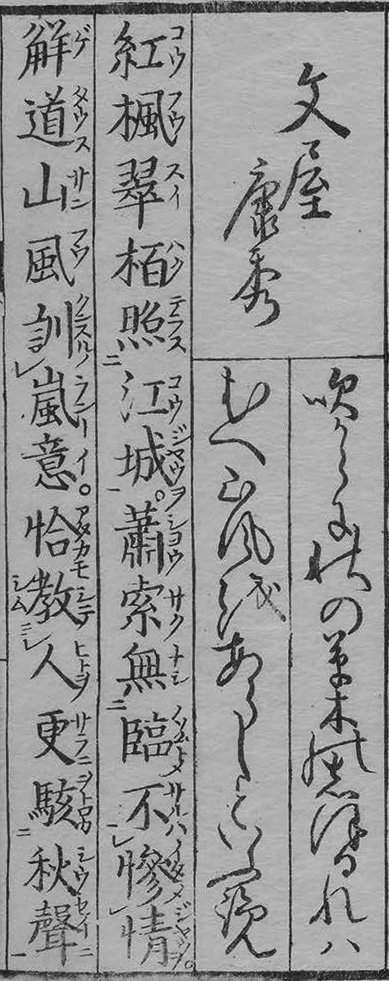 文屋
康秀
吹からに秋の草木の志ほるれハ
むへ山風をあらしといふ覧
紅楓翠栢照江城。蕭索無臨不慘情。
解道山風訓嵐意。恰教人更駭秋聲